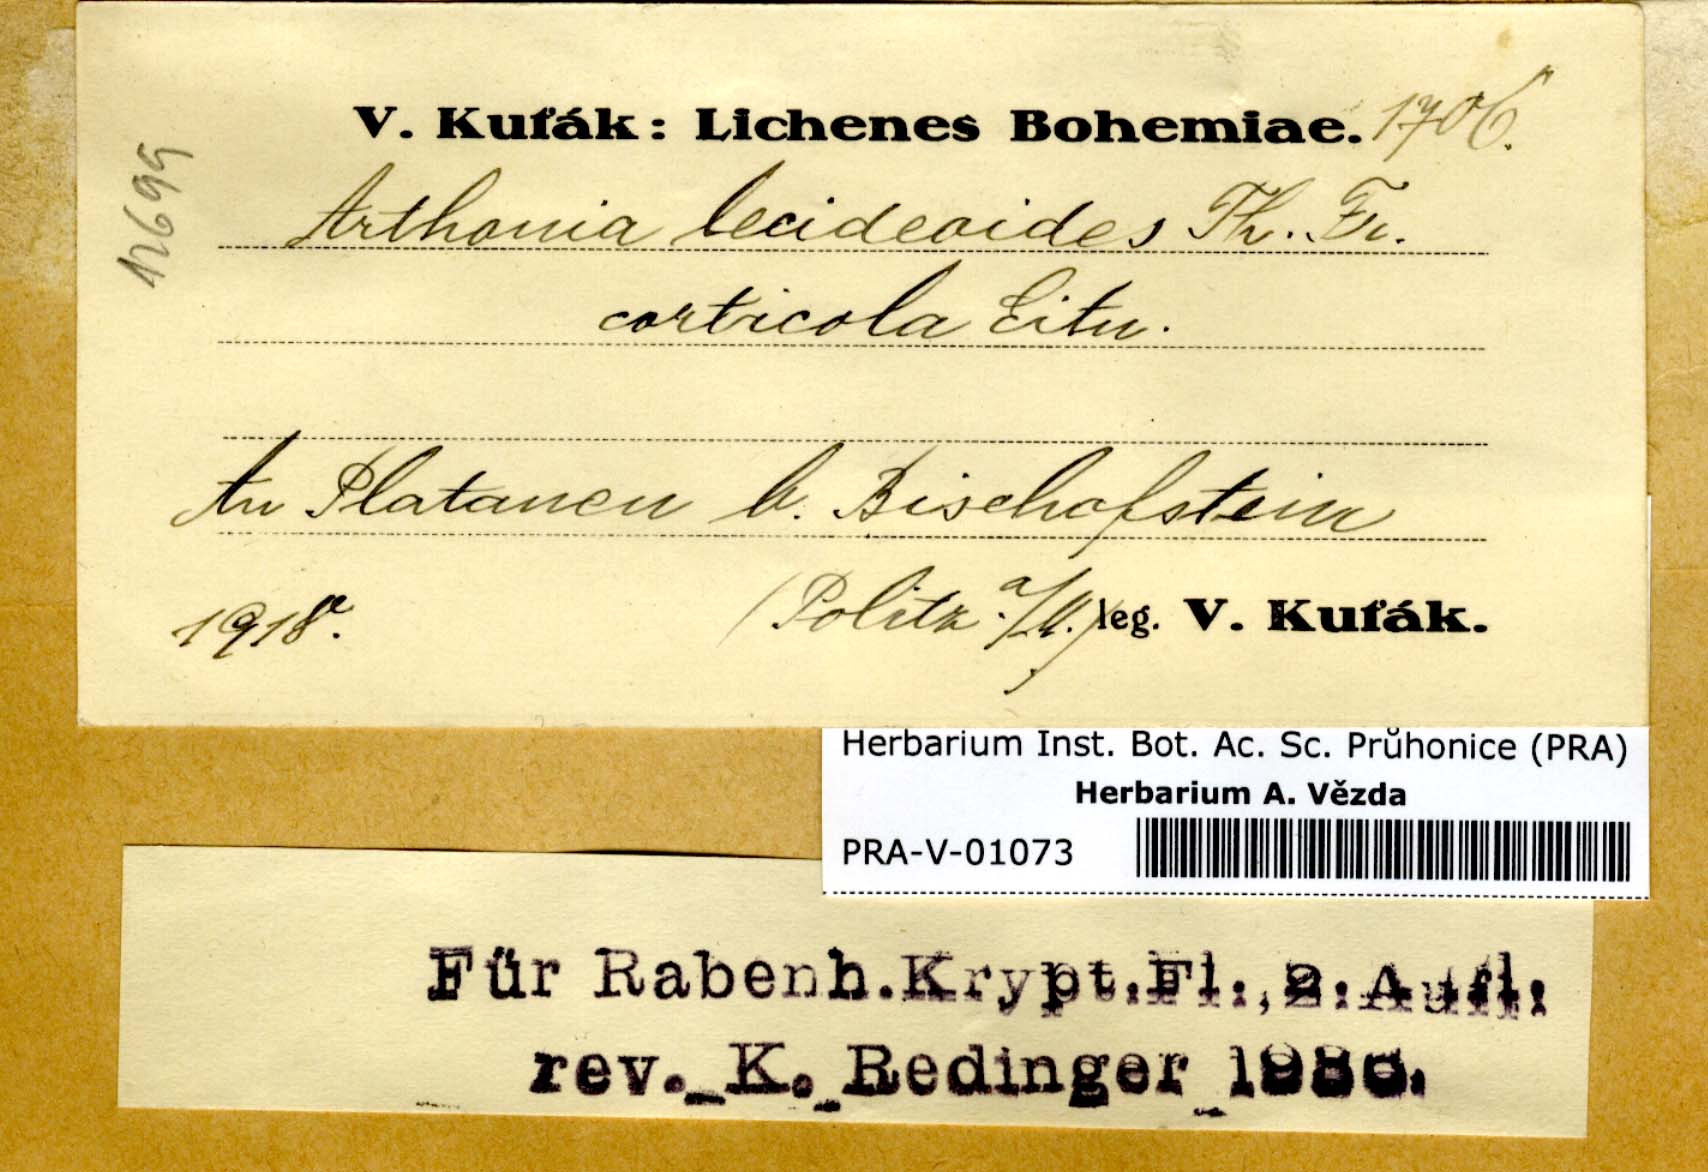 V. Kuťák: Lichenes Bohemiae. 1706.
12695
Arthonia lecideoides Th. Fr.
corticola Eitn.
An Platanen b. Bischofstein
1918.
(Politz a/M.) leg. V. Kuťák.
Herbarium Inst. Bot. Ac. Sc. Průhonice (PRA)
Herbarium A. Vězda
PRA-V-01073
Für Rabenh.Krypt.Fl.,2.Aufl.
rev. K. Redinger 1936.